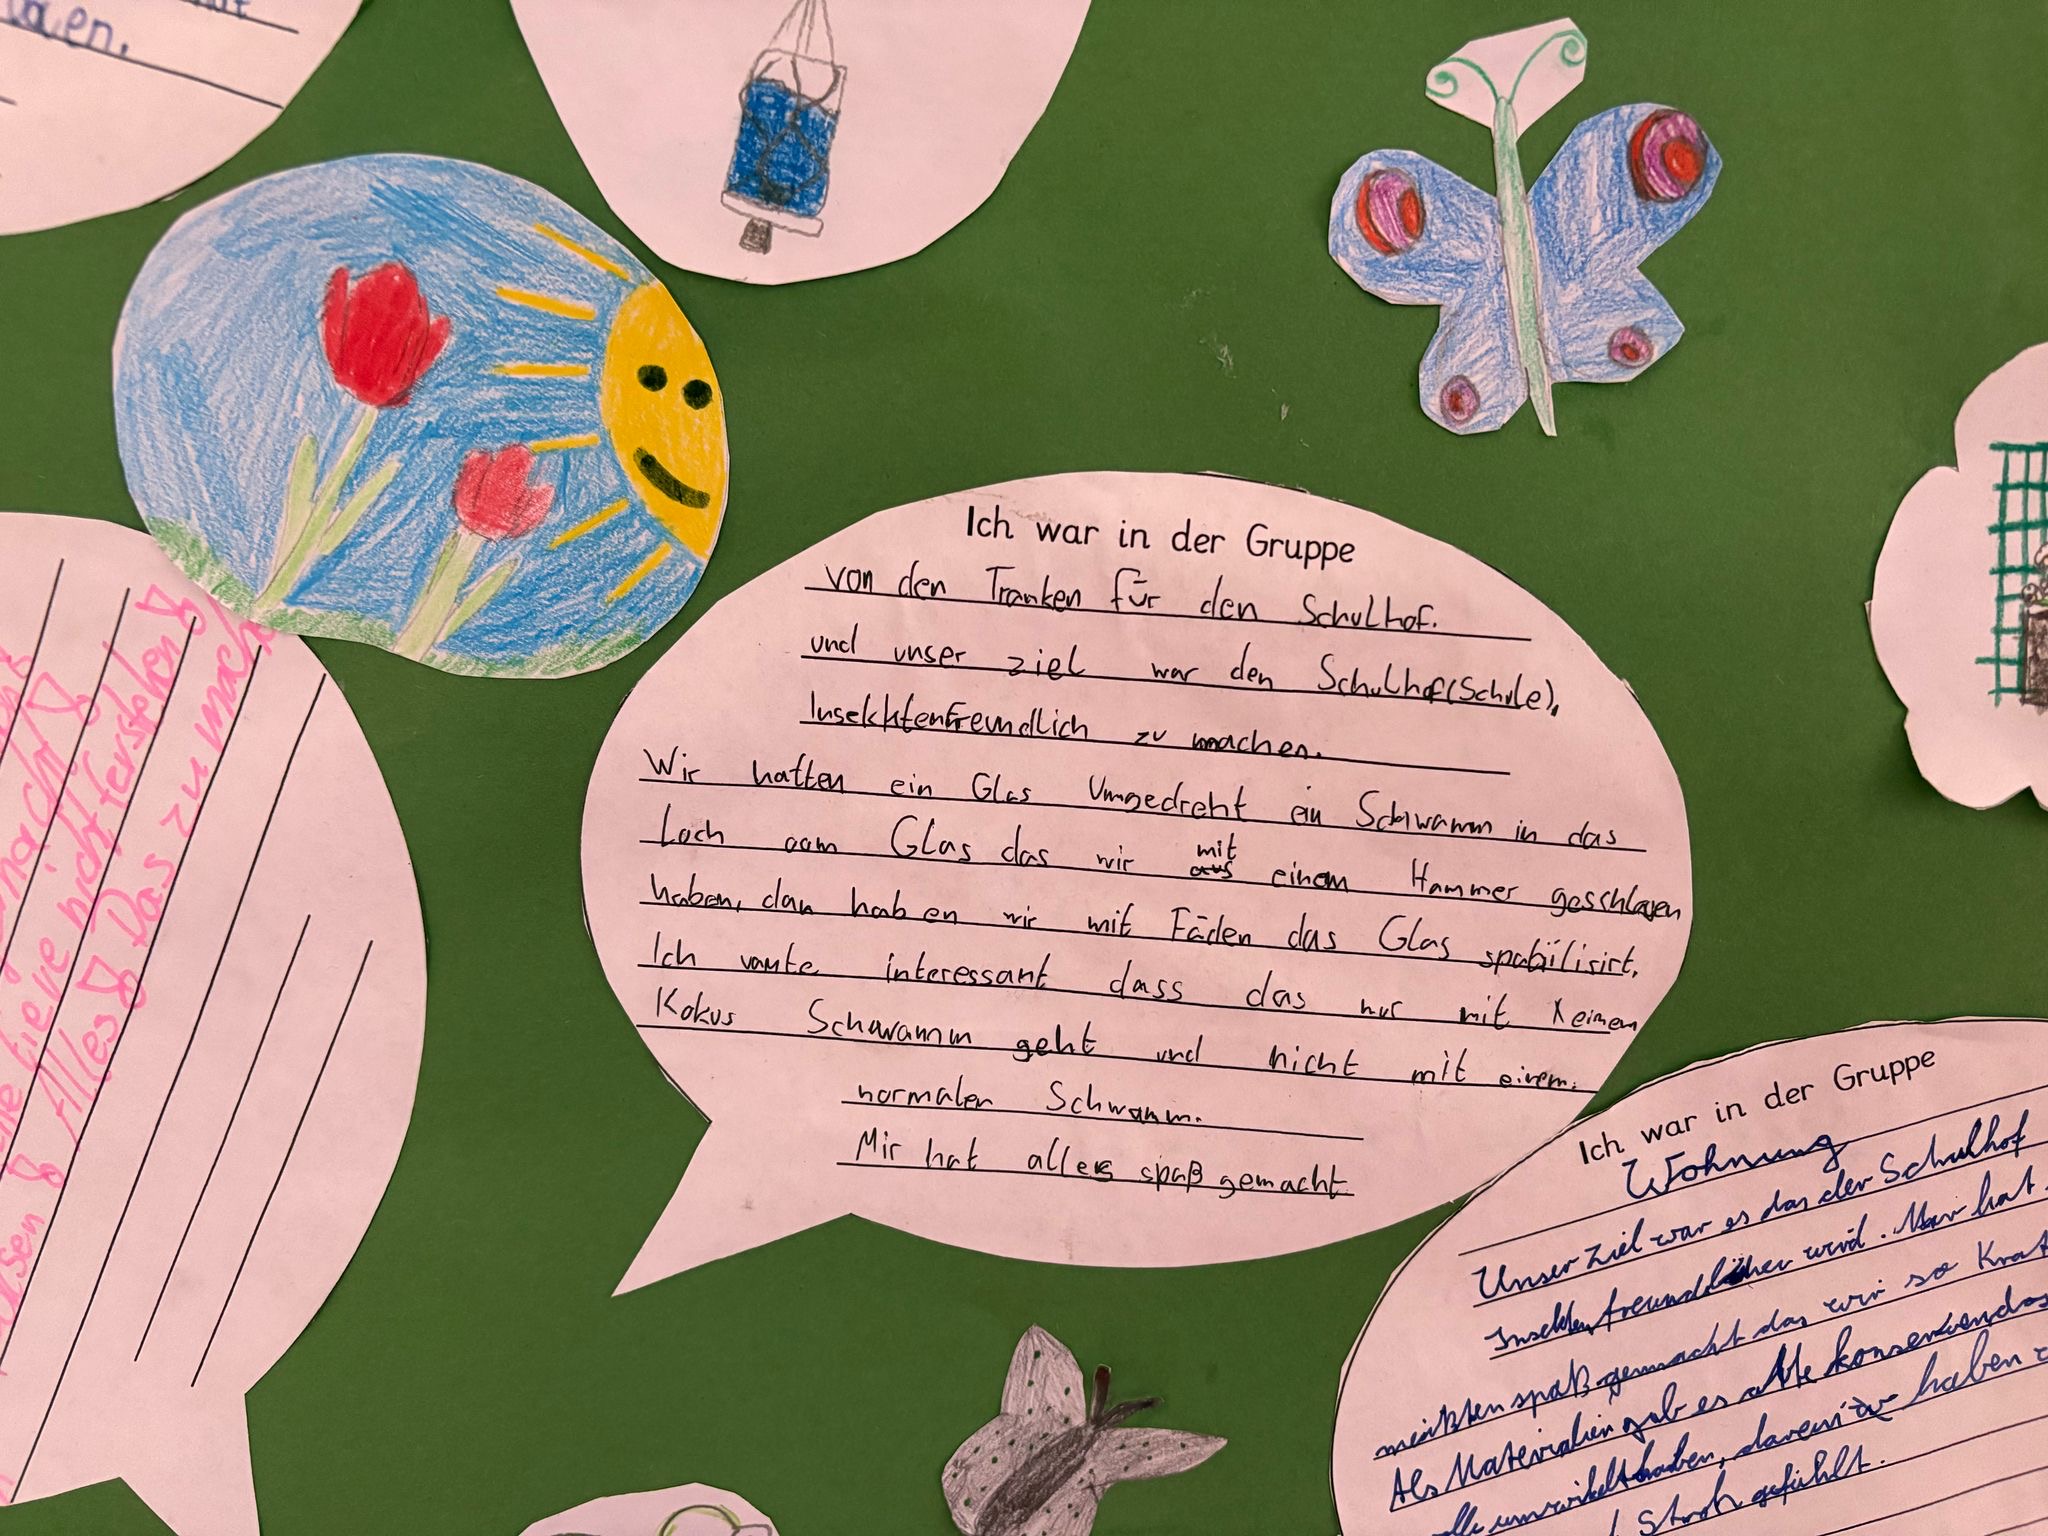 aen.
Ich war in der Gruppe
von den Tranken für den Schulhof.
und unser ziel war den Schulhof(Schule),
Insekhtenfreundlich zu machen.
Wir hatten ein Glas Umgedreht ein Schwamm in das
Loch aam Glas das wir mit einem Hammer geschlagen
haben, dan haben wir mit Fäden das Glas
Ich interessant dass das nur mit keinem
Kokus Schwamm geht und nicht mit einem.
normalen Schwamm.
Mir hat alles spaß gemacht
nicht ferstehen
Alles Das zu mach
Ich war in der Gruppe
Wohnung
Unser Ziel war es das der Schulhof
Insekten freundlicher wird. Mir hat
meißten spaß gemacht das wir so Kreat
Als Materialien gab es alte konservendos
alle umwikelt haben, haben
Stroh gefühlt.